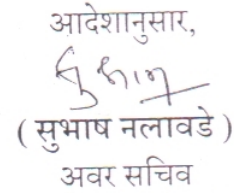 आदेशानुसार,
( सुभाष नलावडे )
अवर सचिव